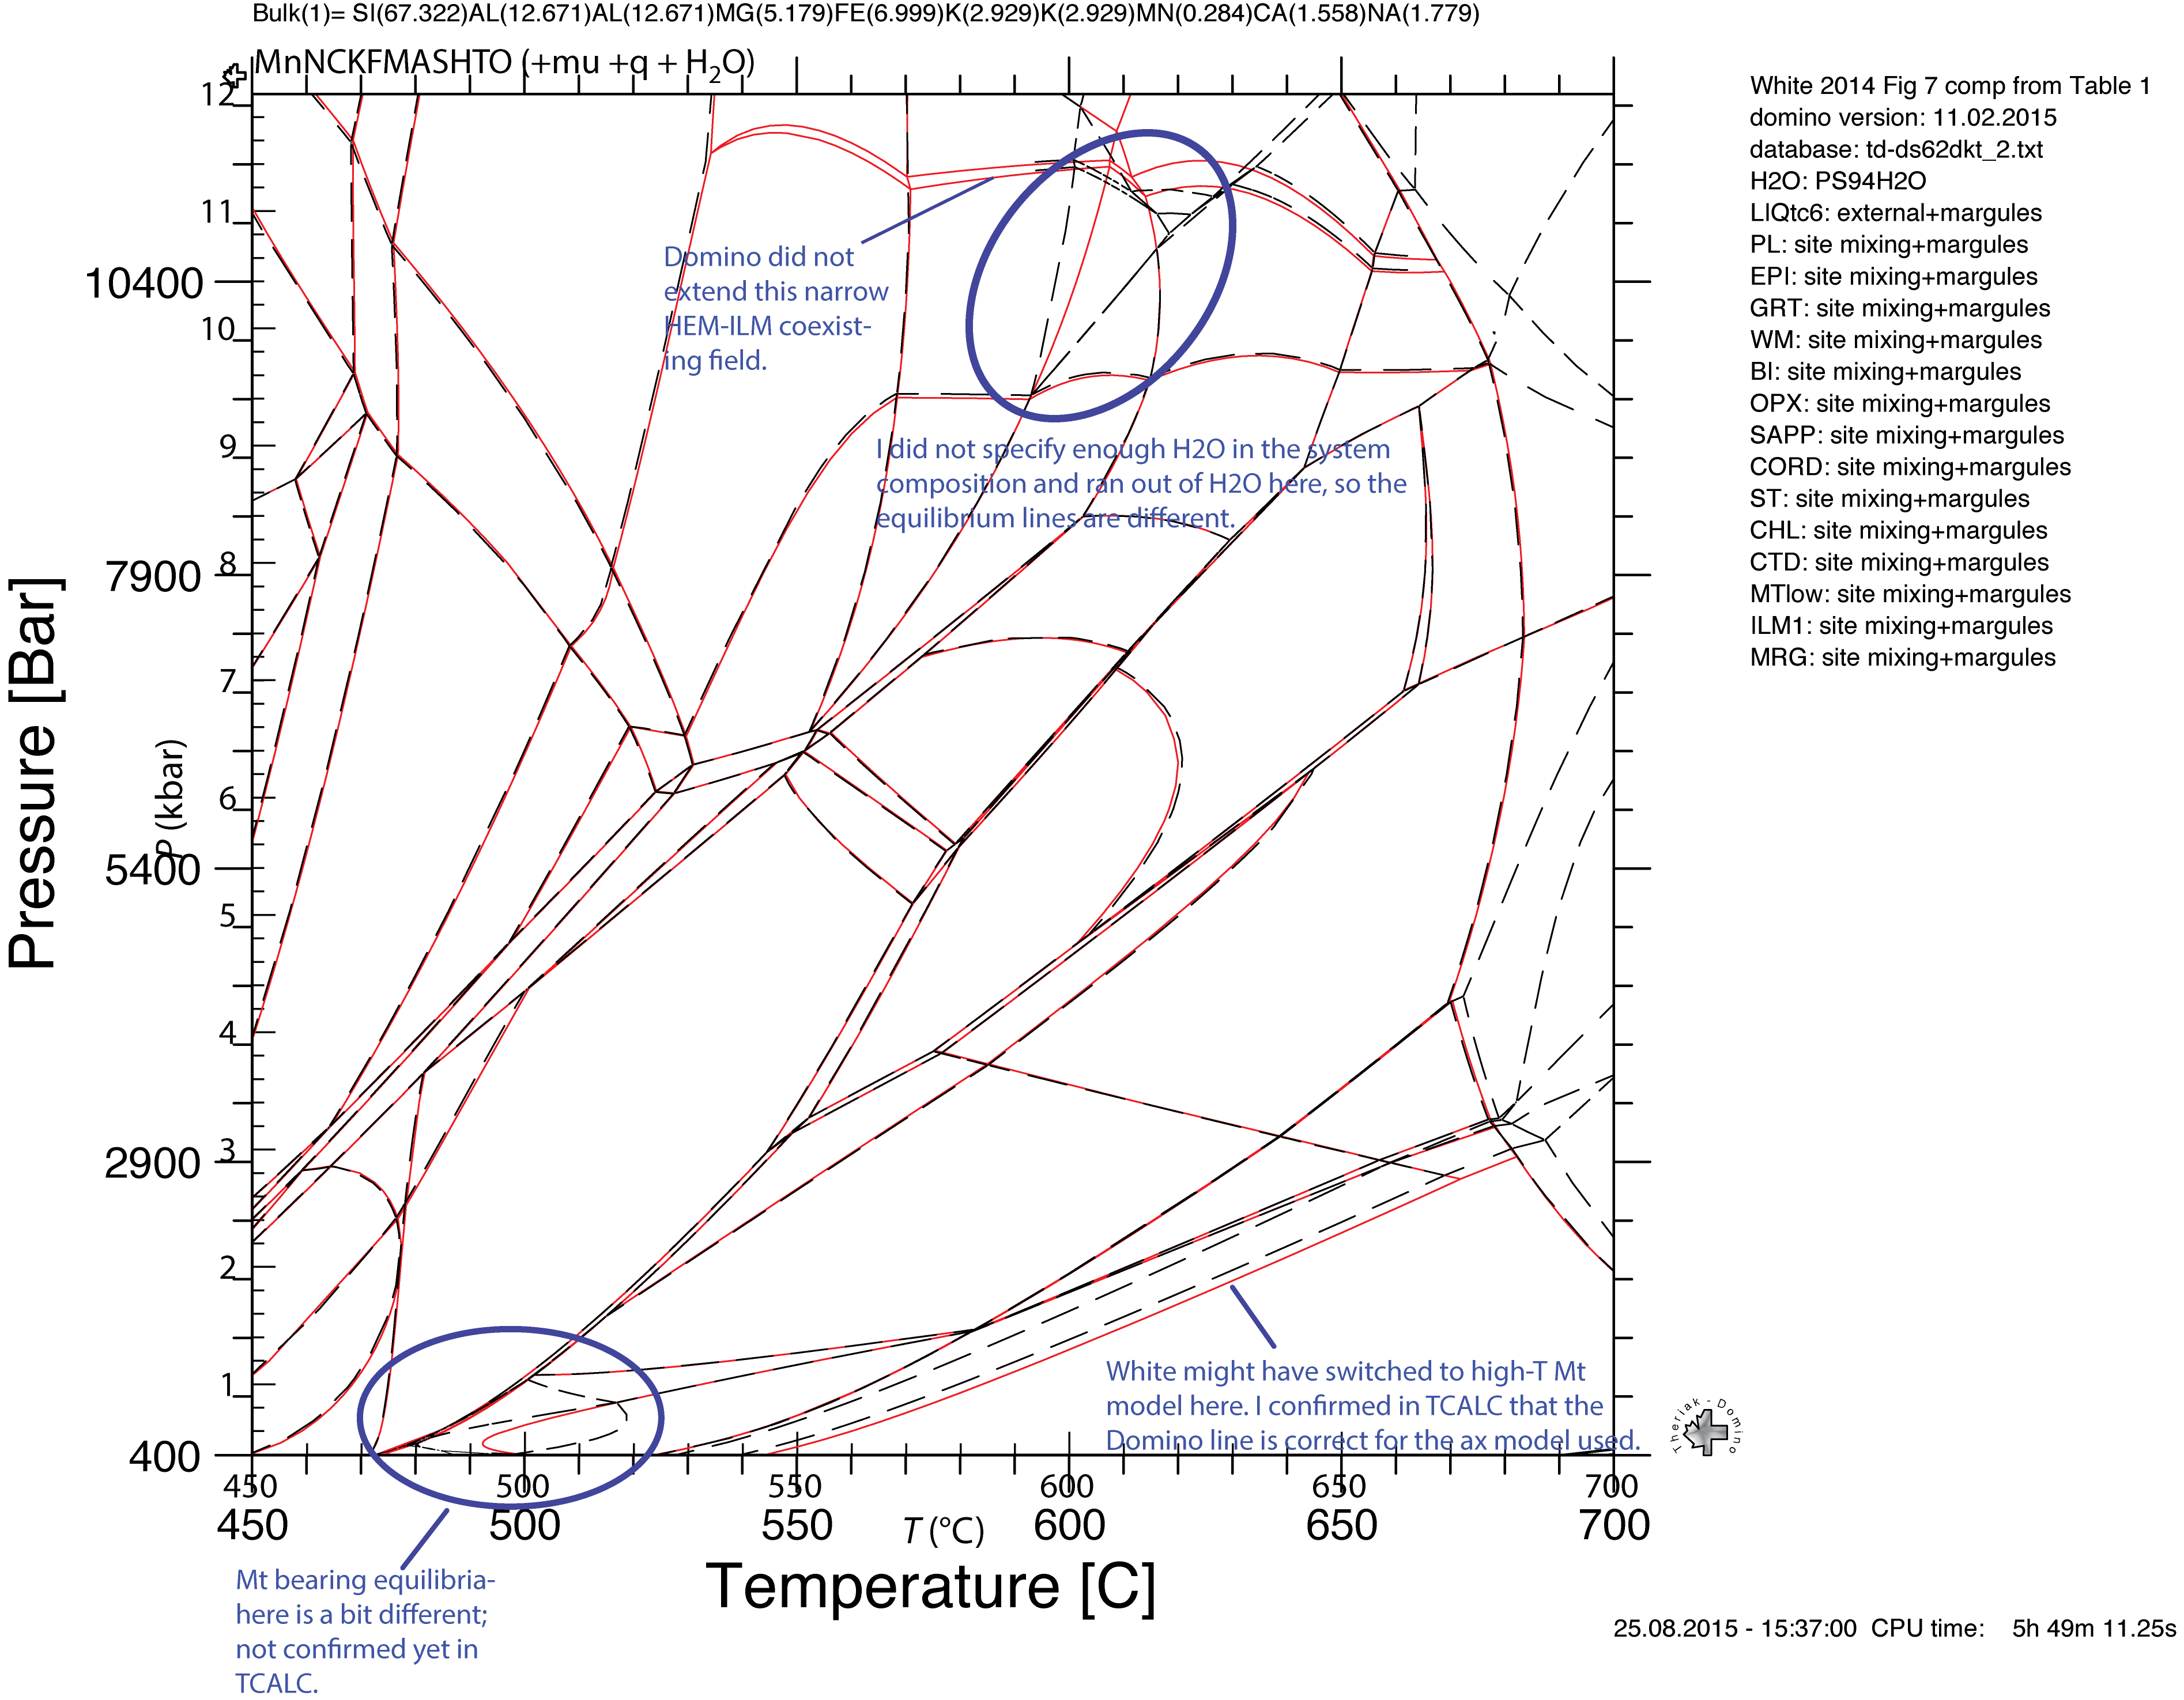 Bulk(1)= SI(67.322)AL(12.671)AL(12.671)MG(5.179)FE(6.999)K(2.929)K(2.929)MN(0.284)CA(1.558)NA(1.779)
MnNCKFMASHTO (+mu +q + H2O)
White 2014 Fig 7 comp from Table 1
domino version: 11.02.2015
database: td-ds62dkt_2.txt
H2O: PS94H2O
LIQtc6: external+margules
PL: site mixing+margules
EPI: site mixing+margules
GRT: site mixing+margules
WM: site mixing+margules
BI: site mixing+margules
OPX: site mixing+margules
SAPP: site mixing+margules
CORD: site mixing+margules
ST: site mixing+margules
CHL: site mixing+margules
CTD: site mixing+margules
MTlow: site mixing+margules
ILM1: site mixing+margules
MRG: site mixing+margules
12
11
10400
10
9
7900
8
7
6
5400
5
4
2900
3
2
1
400
Pressure [Bar]
P (kbar)
Domino did not
extend this narrow
HEM-ILM coexist-
ing field.
I did not specify enough H2O in the system
composition and ran out of H2O here, so the
equilibrium lines are different.
White might have switched to high-T Mt
model here. I confirmed in TCALC that the
Domino line is correct for the ax model used.
Theriak - Domino
450 500 550 600 650 700
450 500 550 600 650 700
T (°C)
Temperature [C]
Mt bearing equilibria-
here is a bit different;
not confirmed yet in
TCALC.
25.08.2015 - 15:37:00 CPU time: 5h 49m 11.25s